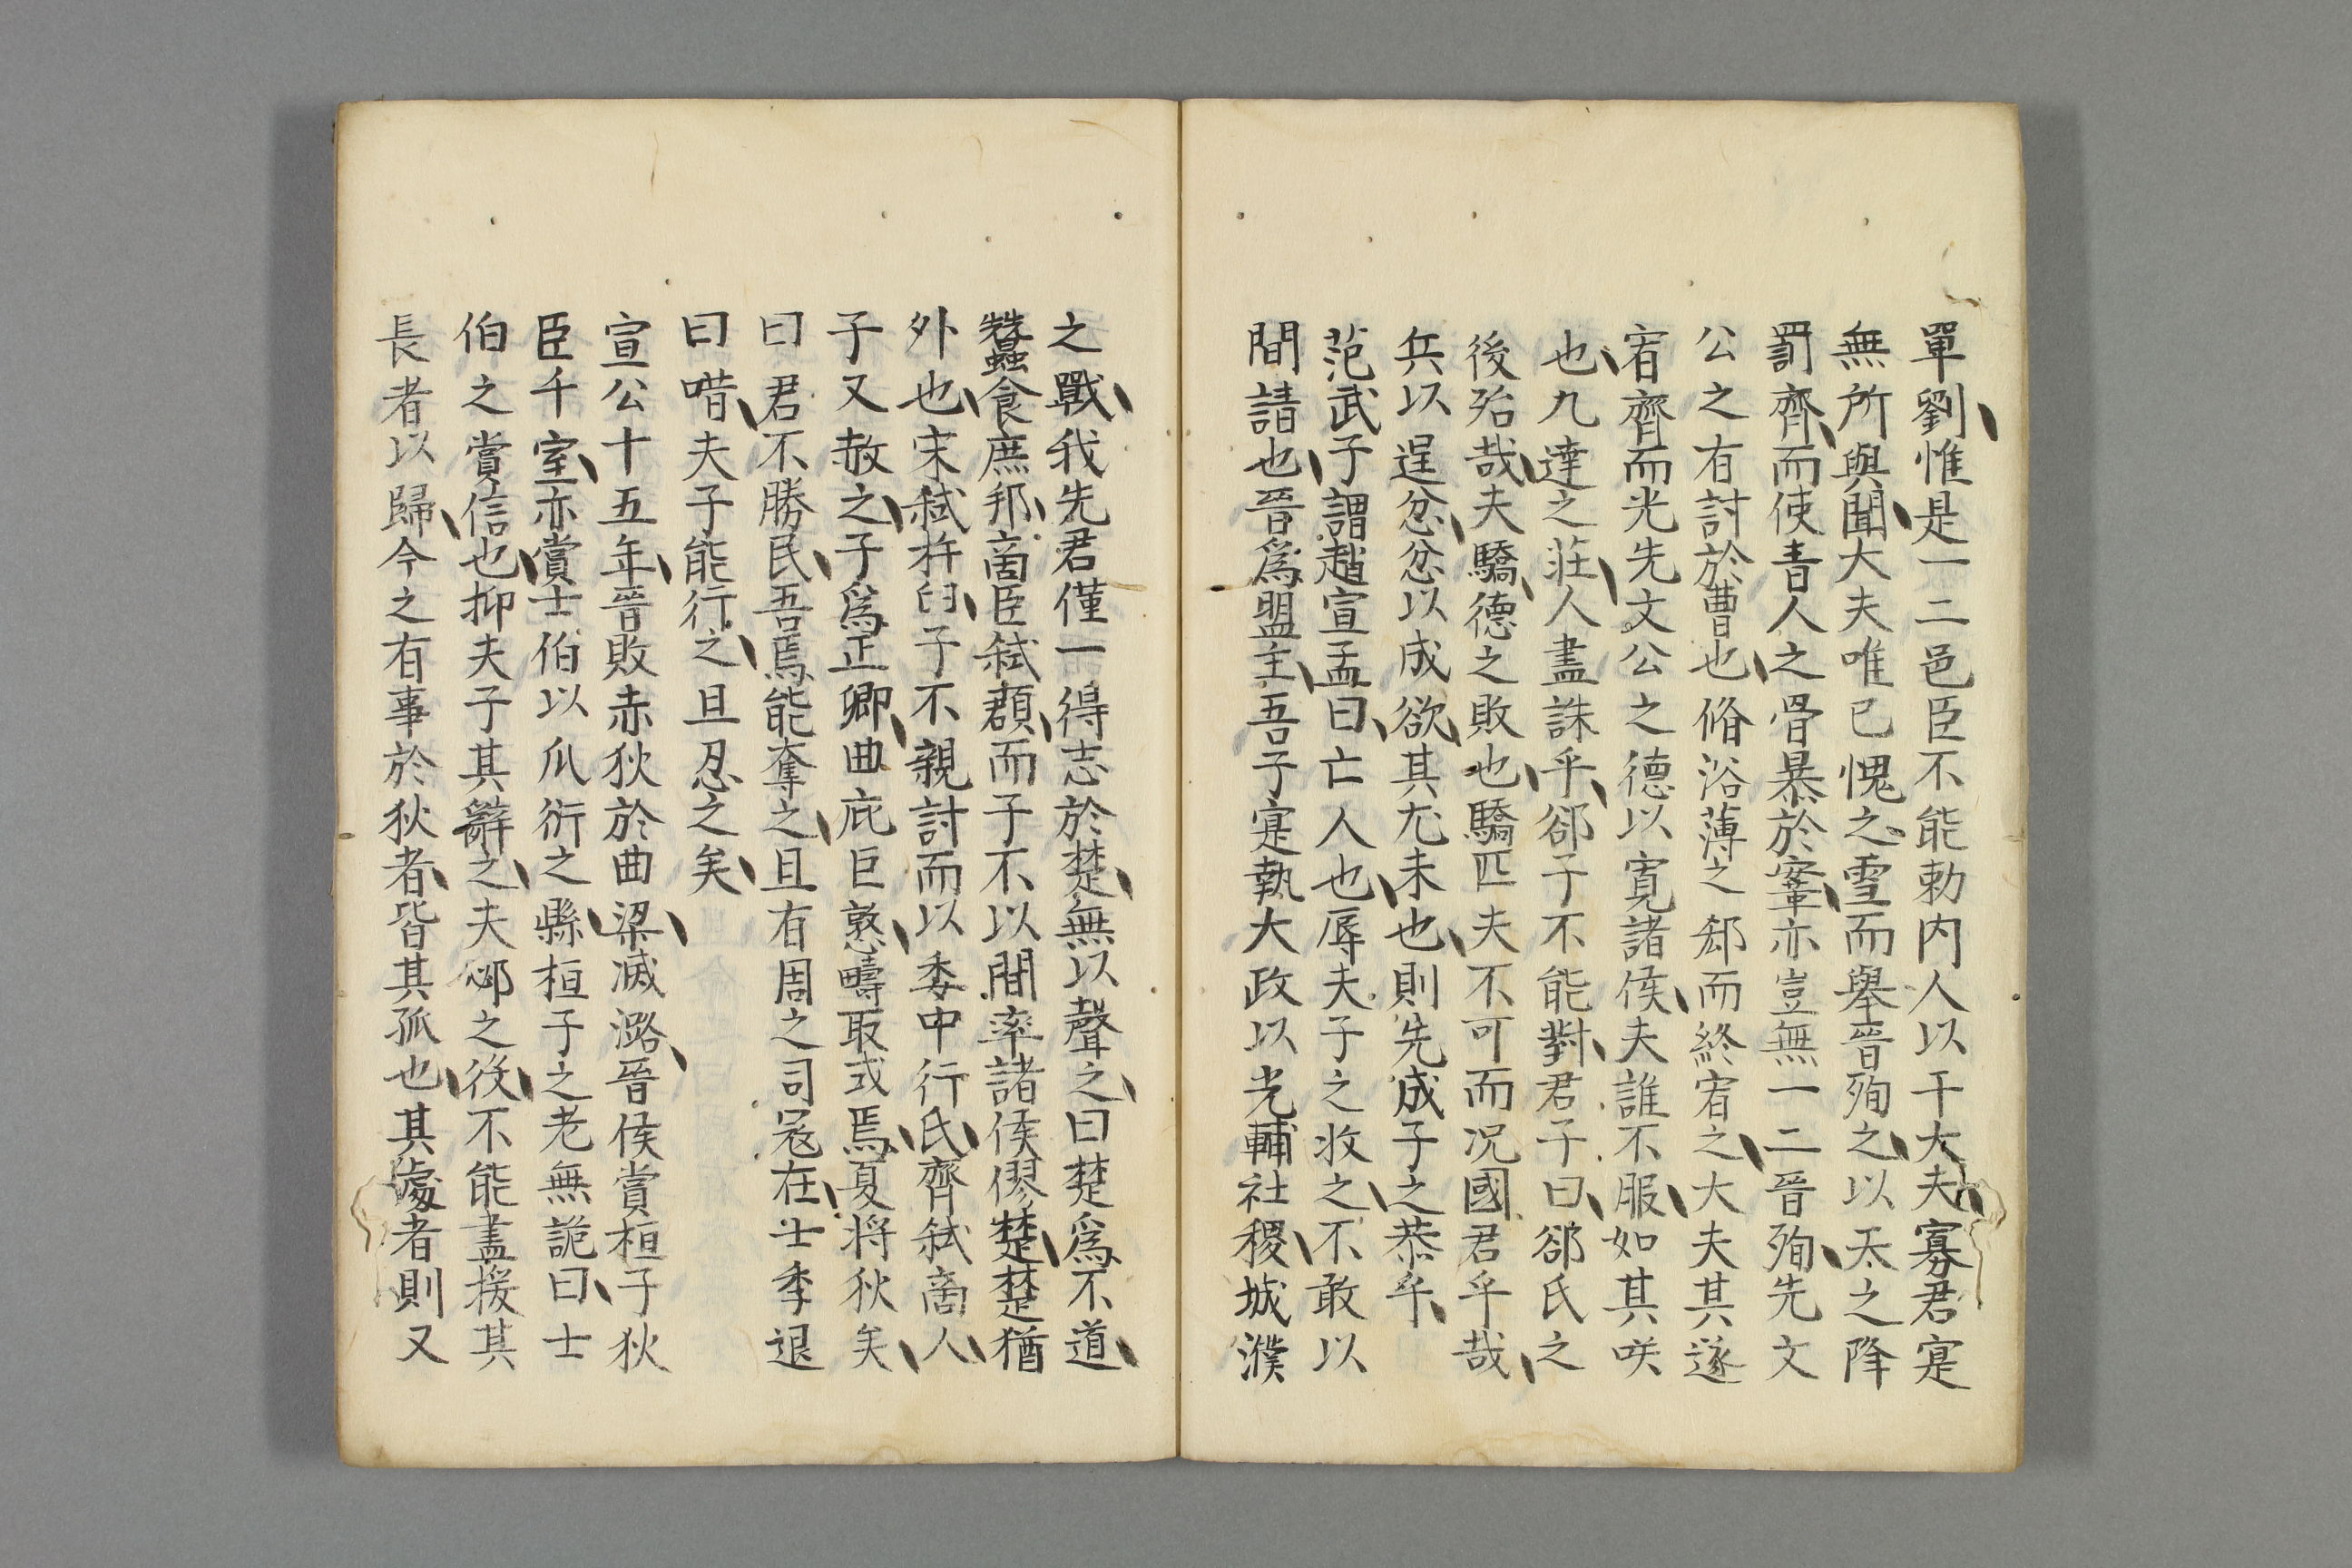 單劉惟是一二邑臣不能勅内人以干大夫寡君寔
無所與聞大夫唯已愧之雪而舉晉殉之以天之降
罰齊而使晉人之骨暴於鞌亦豈無一二晉殉先文
公之有討於曹也脩浴薄之郄而終宥之大夫其遂
宥齊而光先文公之德以寬諸侯夫誰不服如其咲
也九達之莊人盡誅乎郤子不能對君子曰郤氏之
後殆哉夫驕德之敗也驕匹夫不可而况國君乎哉
兵以逞忿忿以成欲其尢未也則先成子之恭乎
范武子謂趙宣孟曰亡人也辱夫子之收之不敢以
間請也晉爲盟主吾子寔執大政以光輔社稷城濮
之戰我先君僅一得志於楚無以聲之曰楚爲不道
蠶食庶邦啇臣弑頵而子不以間率諸侯僇楚楚猶
外也宋弑杵臼子不親討而以委中行氏齊弑啇人
子又赦之子爲正卿曲庇巨憝疇取或焉夏将狄矣
曰君不勝民吾焉能奪之且有周之司冦在士季退
曰唶夫子能行之且忍之矣
宣公十五年晉敗赤狄於曲梁滅潞晉侯賞桓子狄
臣千室亦賞士伯以瓜衍之縣桓子之老無詭曰士
伯之賞信也抑夫子其辭之夫邲之役不能盡援其
長者以歸今之有事於狄者皆其孤也其處者則又